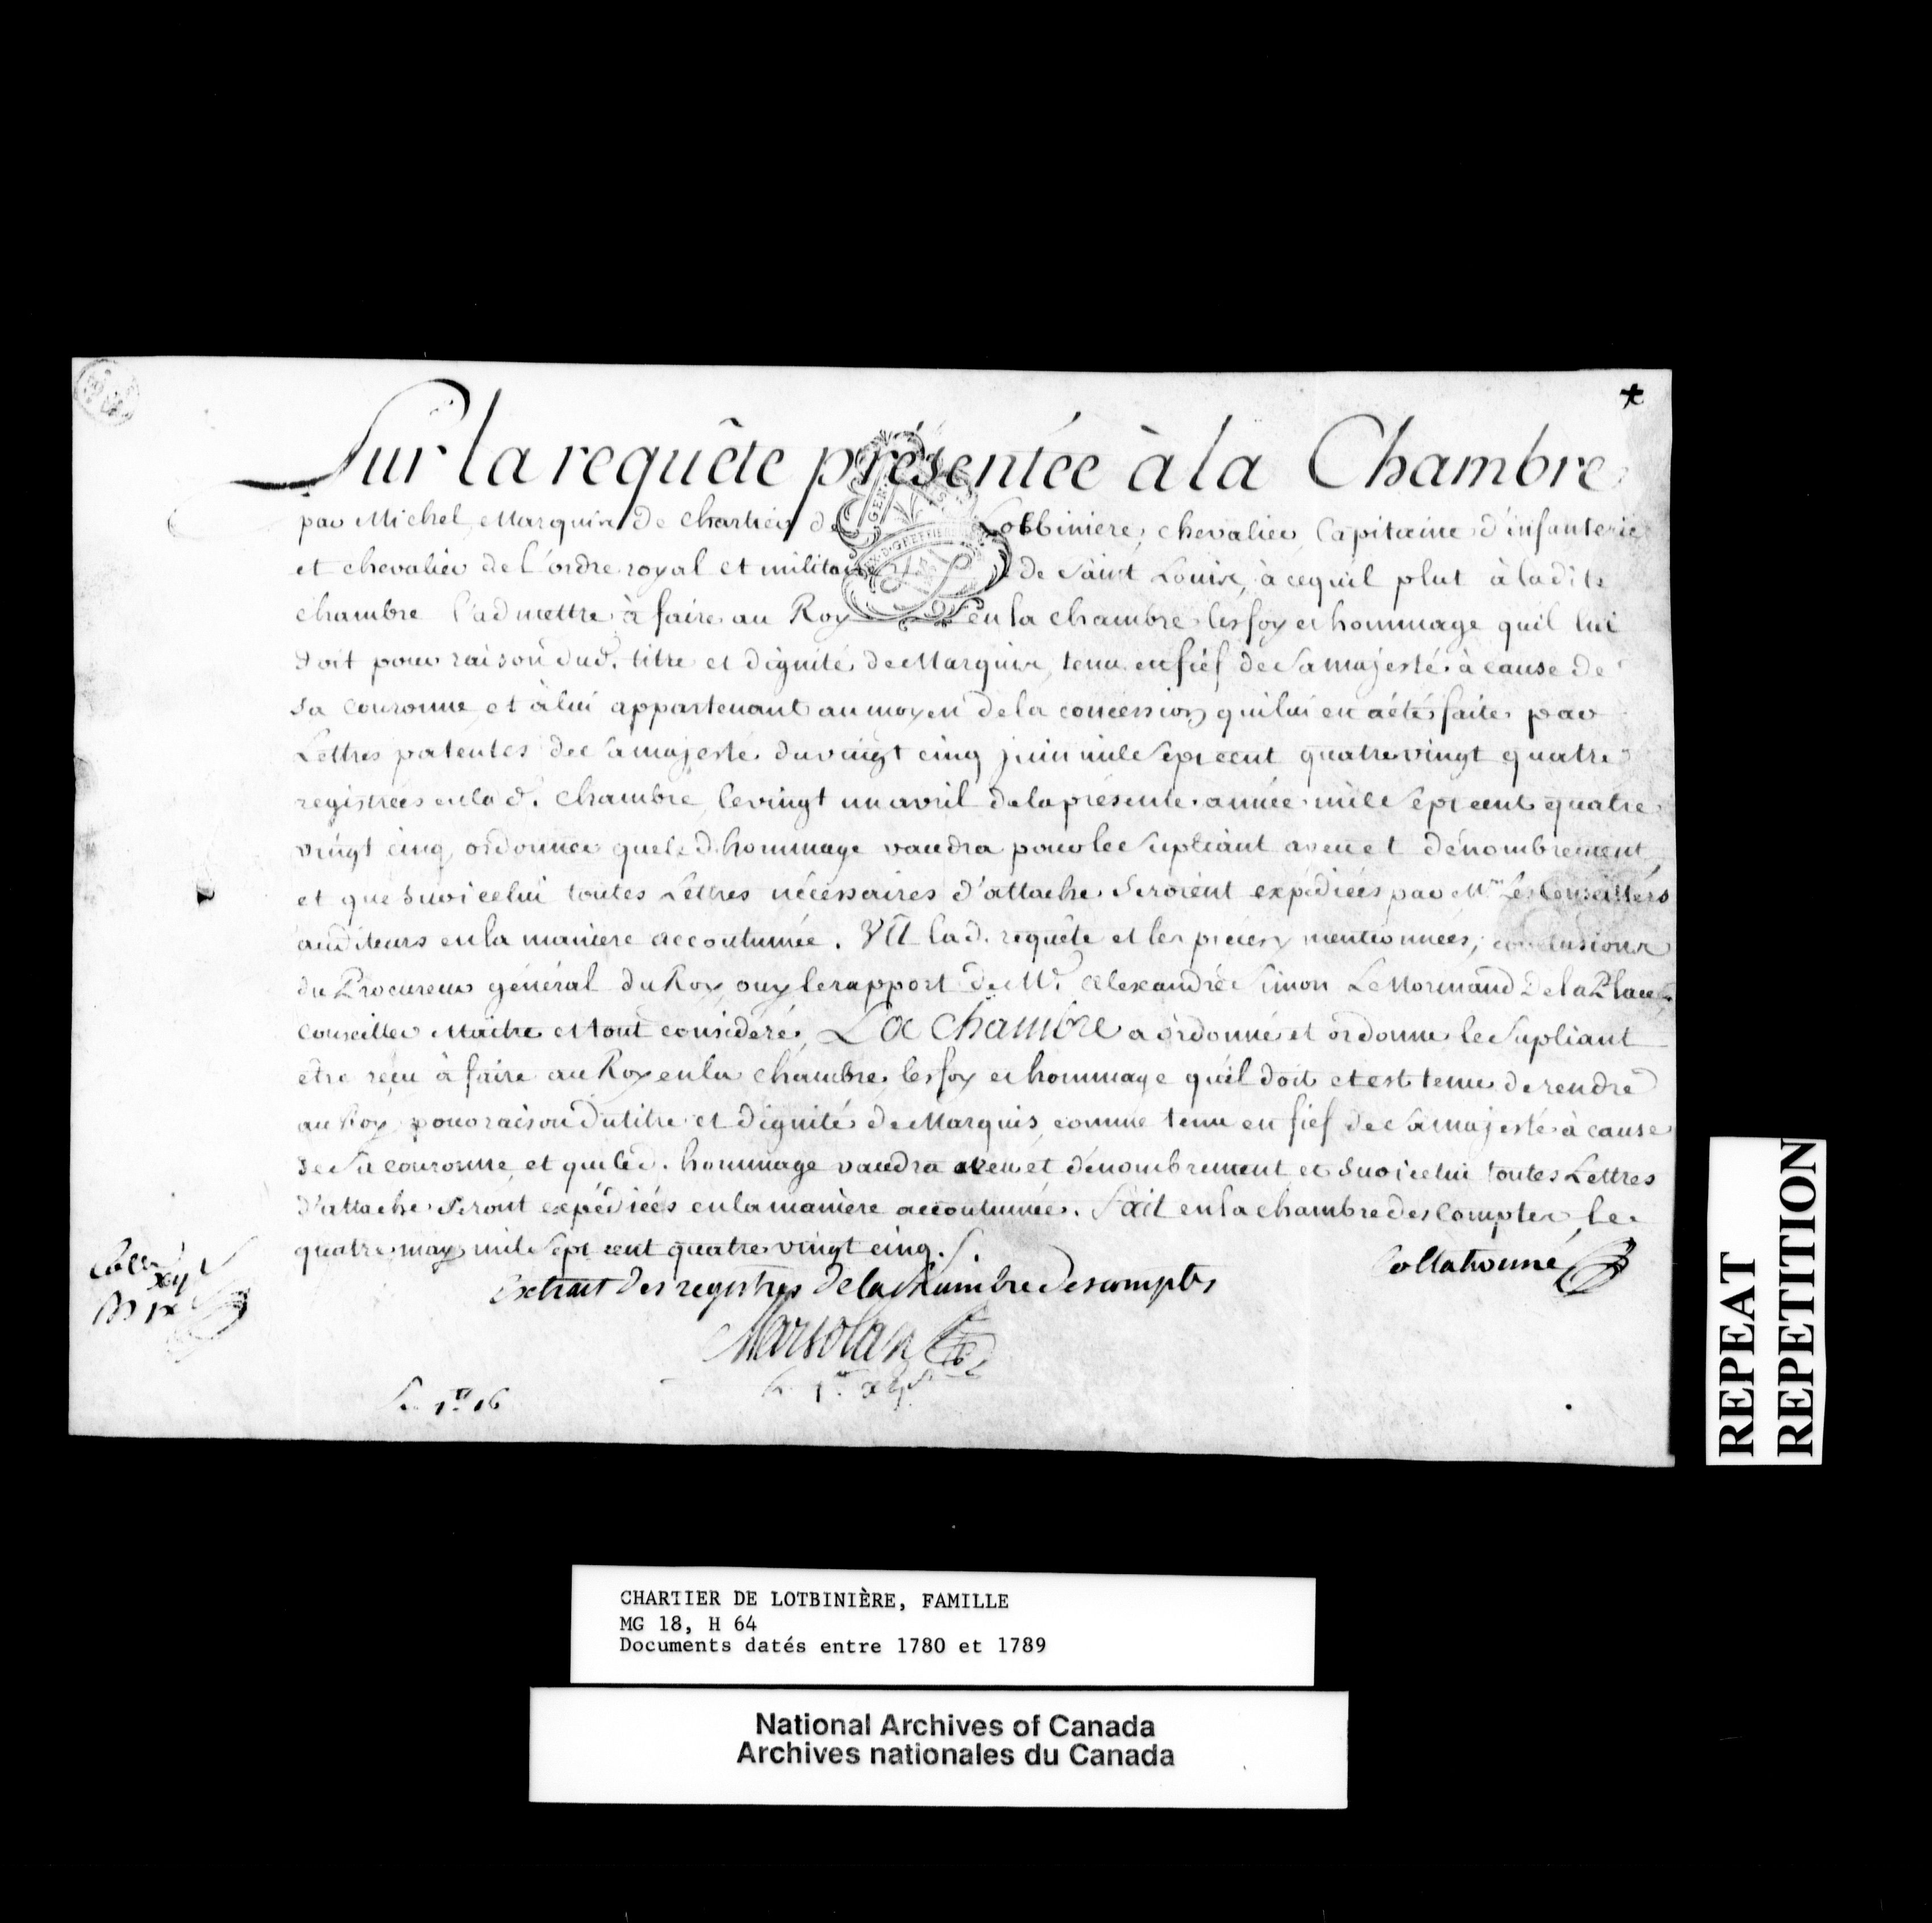 Sur la requête présentée à la Chambre
par Michel Marquis de Chartier de Lotbiniere, chevalier Capitaine d'infanterie
et chevalier de l'ordre royal et militaire de Saint Louis, à cequil plut à la dite
chambre l'admettre à faire au Roy en la chambre les foy et hommage quil lui
doit pour raison dud. titre et dignité de Marquis, tenu en fief de Sa majesté à cause de
sa couronne et à lui appartenant au moyen de la concession qui lui en a été faite par
Lettres patentes de Sa majesté du vingt cinq juin mile sept cent quatre vingt quatre
registrées en lad. chambre le vingt un avril de la présente année mile sept cent quatre
vingt cinq, ordonner que led. hommage vaudra pour le Supliant aveu et dénombrement
et que sur icelui toutes Lettres nécessaires d'attache seroient expédiées par Mrs. Les Conseillers
auditeurs en la maniere accoutumée. VU lad. requête et les pieces y mentionnées, conclusions
du Procureur général du Roy, ouy le rapport de Me. Alexandre Simon Le Normand De la Place
Conseiller Maitre et tout consideré, La Chambre a ordonné et ordonne le Supliant
être reçu à faire au Roy en la chambre les foy et hommage qu'il doit et est tenu de rendre
au Roy pour raison du titre et dignité de Marquis, comme tenu en fief de Sa majesté à cause
de Sa couronne, et que led. hommage vaudra aveu et dénombrement et sur icelui toutes Lettres
d'attache Seront expédiées en la manière accoutumée. Fait en la chambre des Comptes le
quatre may mil sept cent quatre vingt cinq.
Collationné
Extrait des registres de la Chambre des comptes
Marsolan
CHARTIER DE LOTBINIÈRE, FAMILLE
MG 18, H 64
Documents datés entre 1780 et 1789
National Archives of Canada
Archives nationales du Canada
REPEAT
REPETITION